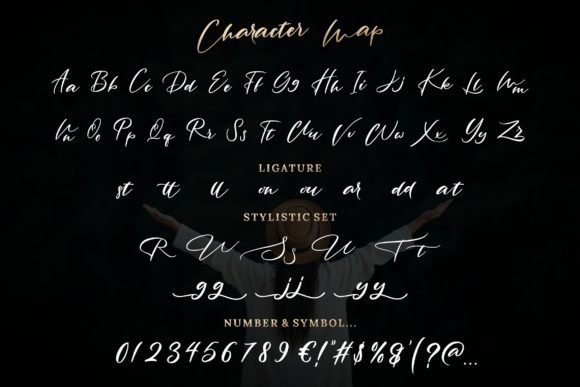 Character Map
Aa Bb Cc Dd Ee Ff Gg Hh Ii Jj Kk Ll Mm
Nn Oo Pp Qq Rr Ss Tt Uu Vv Ww Xx Yy Zz
LIGATURE
st tt ll on ou ar dd at
STYLISTIC SET
R U Ss U Tt
gg jj yy
NUMBER & SYMBOL...
0123456789 €!"#$%&'(?@...